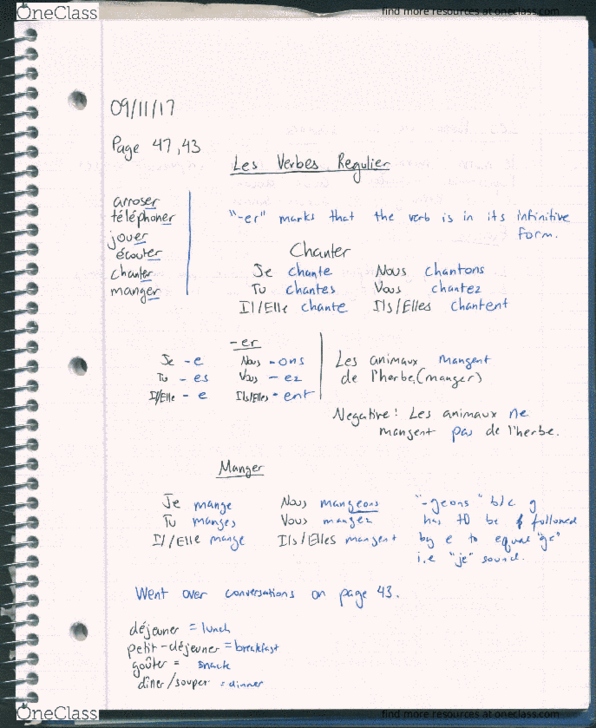 OneClass find more resources at oneclass.com
09/11/17
Page 47,43
Les Verbes Regulier
arroser
téléphoner
jouer
écouter
chanter
manger
"-er" marks that the verb is in its infinitive
form.
Chanter
Je chante Nous chantons
Tu chantes Vous chantez
Il/Elle chante Ils/Elles chantent
-er
Je -e Nous -ons
Tu -es Vous -ez
Il/Elle -e Ils/Elles -ent
Les animaux mangent
de l'herbe.(manger)
Negative: Les animaux ne
mangent pas de l'herbe.
Manger
Je mange Nous mangeons
Tu manges Vous mangez
Il/Elle mange Ils/Elles mangent
"-geons" b/c g
has to be followed
by e to equal "ge"
i.e "je" sound.
Went over conversations on page 43.
déjeuner = lunch
petit-déjeuner = breakfast
goûter = snack
dîner/souper = dinner
OneClass find more resources at oneclass.com